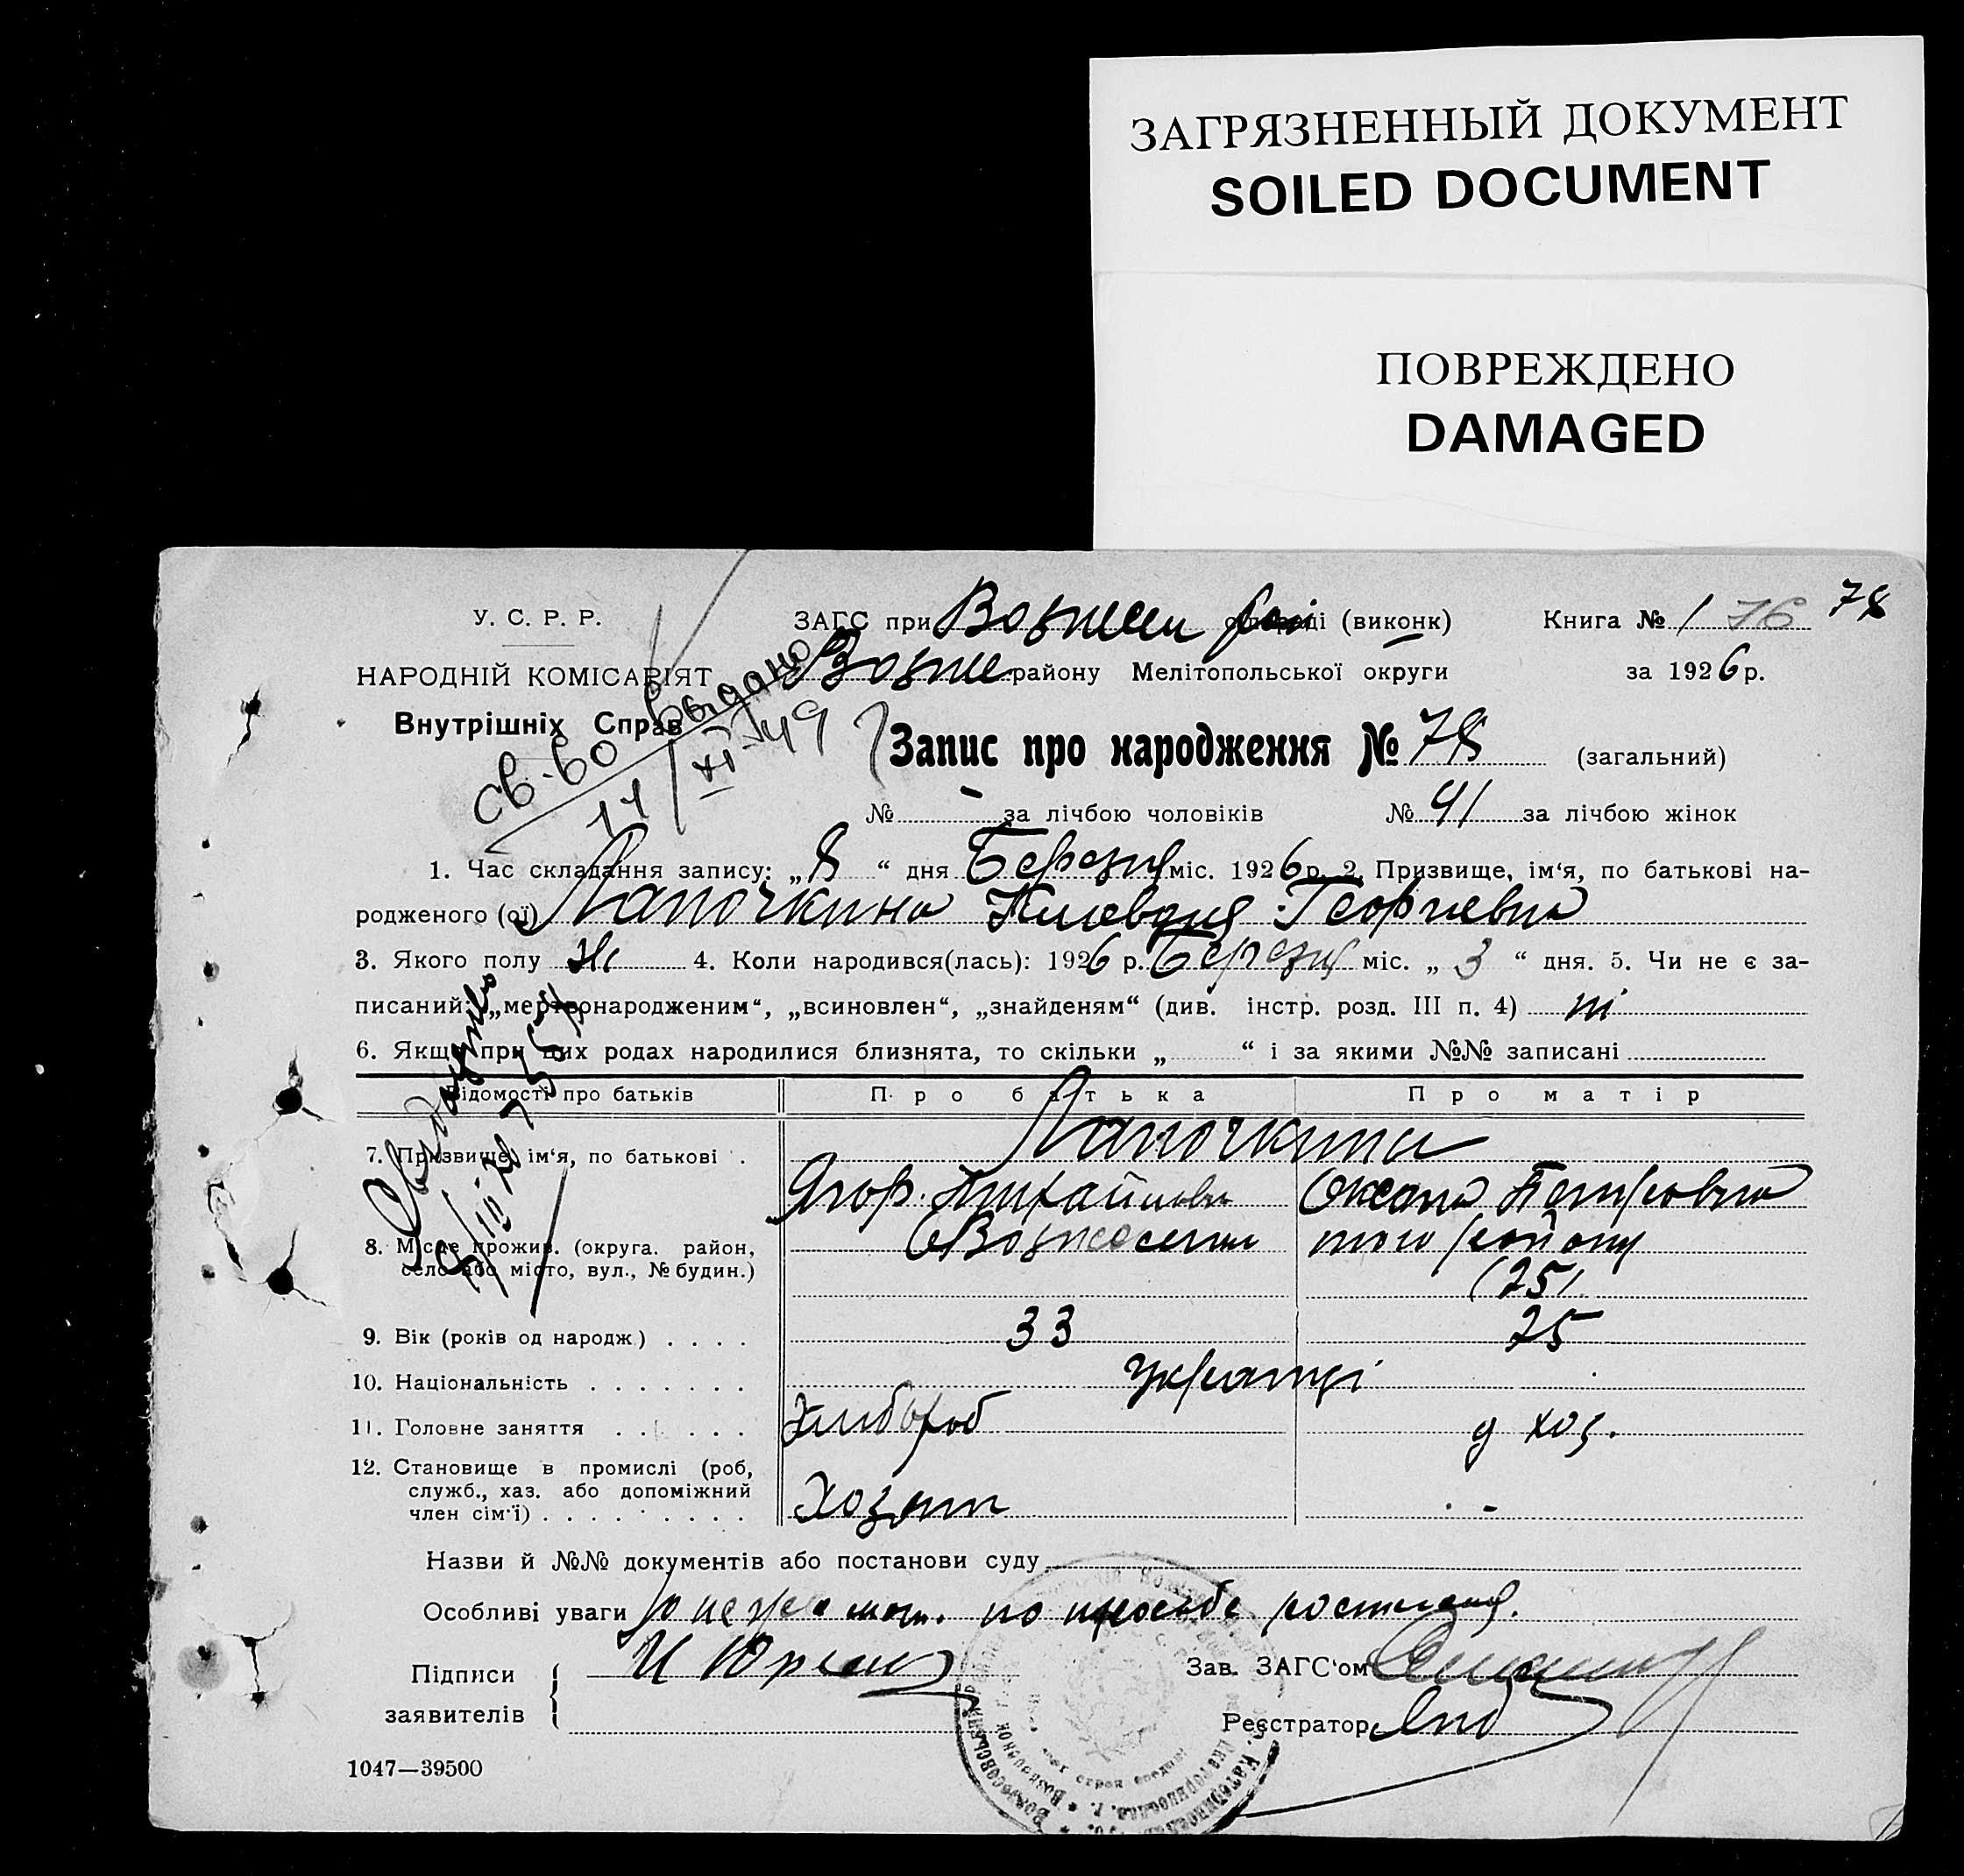 ЗАГРЯЗНЕННЫЙ ДОКУМЕНТ
SOILED DOCUMENT
ПОВРЕЖДЕНО
DAMAGED
У. С. Р. Р.
ЗАГС при (виконк) Книга № 1 76 78
НАРОДНІЙ КОМІСАРІЯТ району Мелітопольської округи за 1926 р.
Внутрішніх Справ
Св-во выдано
11/XI-49
Запис про народження № 78 (загальний)
№ - за лічбою чоловіків № 41 за лічбою жінок
1. Час складання запису: „ 8 “ дня Березня міс. 1926 р. 2. Призвище, ім'я, по батькові на-
родженого (ої) Лапочкина Георгиевна
3. Якого полу Ж 4. Коли народився(лась): 1926 р. Березня міс. „ 3 “ дня. 5. Чи не є за-
писаний: „мертвонародженим“, „всиновлен“, „знайденям“ (див. інстр. розд. III п. 4) ні
6. Якщо при цих родах народилися близнята, то скільки „ “ і за якими №№ записані
Відомості про батьків Про батька Про матір
7. Призвище, ім‘я, по батькові Лапочкини
Ягор Михайлов Оксана Петровна
8. Місце прожив. (округа. район, Вознесенка того району
село або місто, вул., № будин.) (25)
9. Вік (років од народж) 33 25
10. Національність Українці
11. Головне заняття Хлибороб д хоз.
12. Становище в промислі (роб,
служб., хаз. або допоміжний
член сім'ї) Хозяин -
Назви й №№ документів або постанови суду
Особливі уваги по просьбе
Підписи Зав. ЗАГС‘ом
заявителів Реєстратор
1047—39500